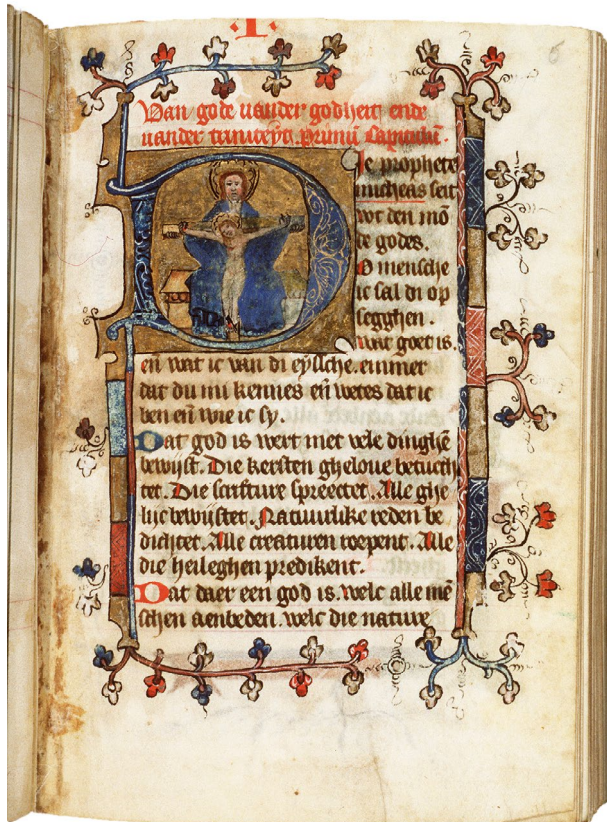 ·I·
Van gode uander godheit ende
uander triniteyt. Primū Capitulū.
Die prophete
micheas seit
wt den mō
de godes.
O mensche
ic sal di op
segghen.
wat goet is.
en wat ic van di eyssche. emmer
dat du mi kennes eñ wetes dat ic
ben eñ wie ic sy.
Dat god is wert met vele dinghē
bewijst. Die kersten gheloue betuch
tet. Die scrifture spreectet. Alle ghe
lijc bewijstet. Natuurlike reden be
dichtet. Alle creaturen roepent. Alle
die heileghen predikent.
Dat daer een god is. welc alle mē
schen aenbeden. welc die nature